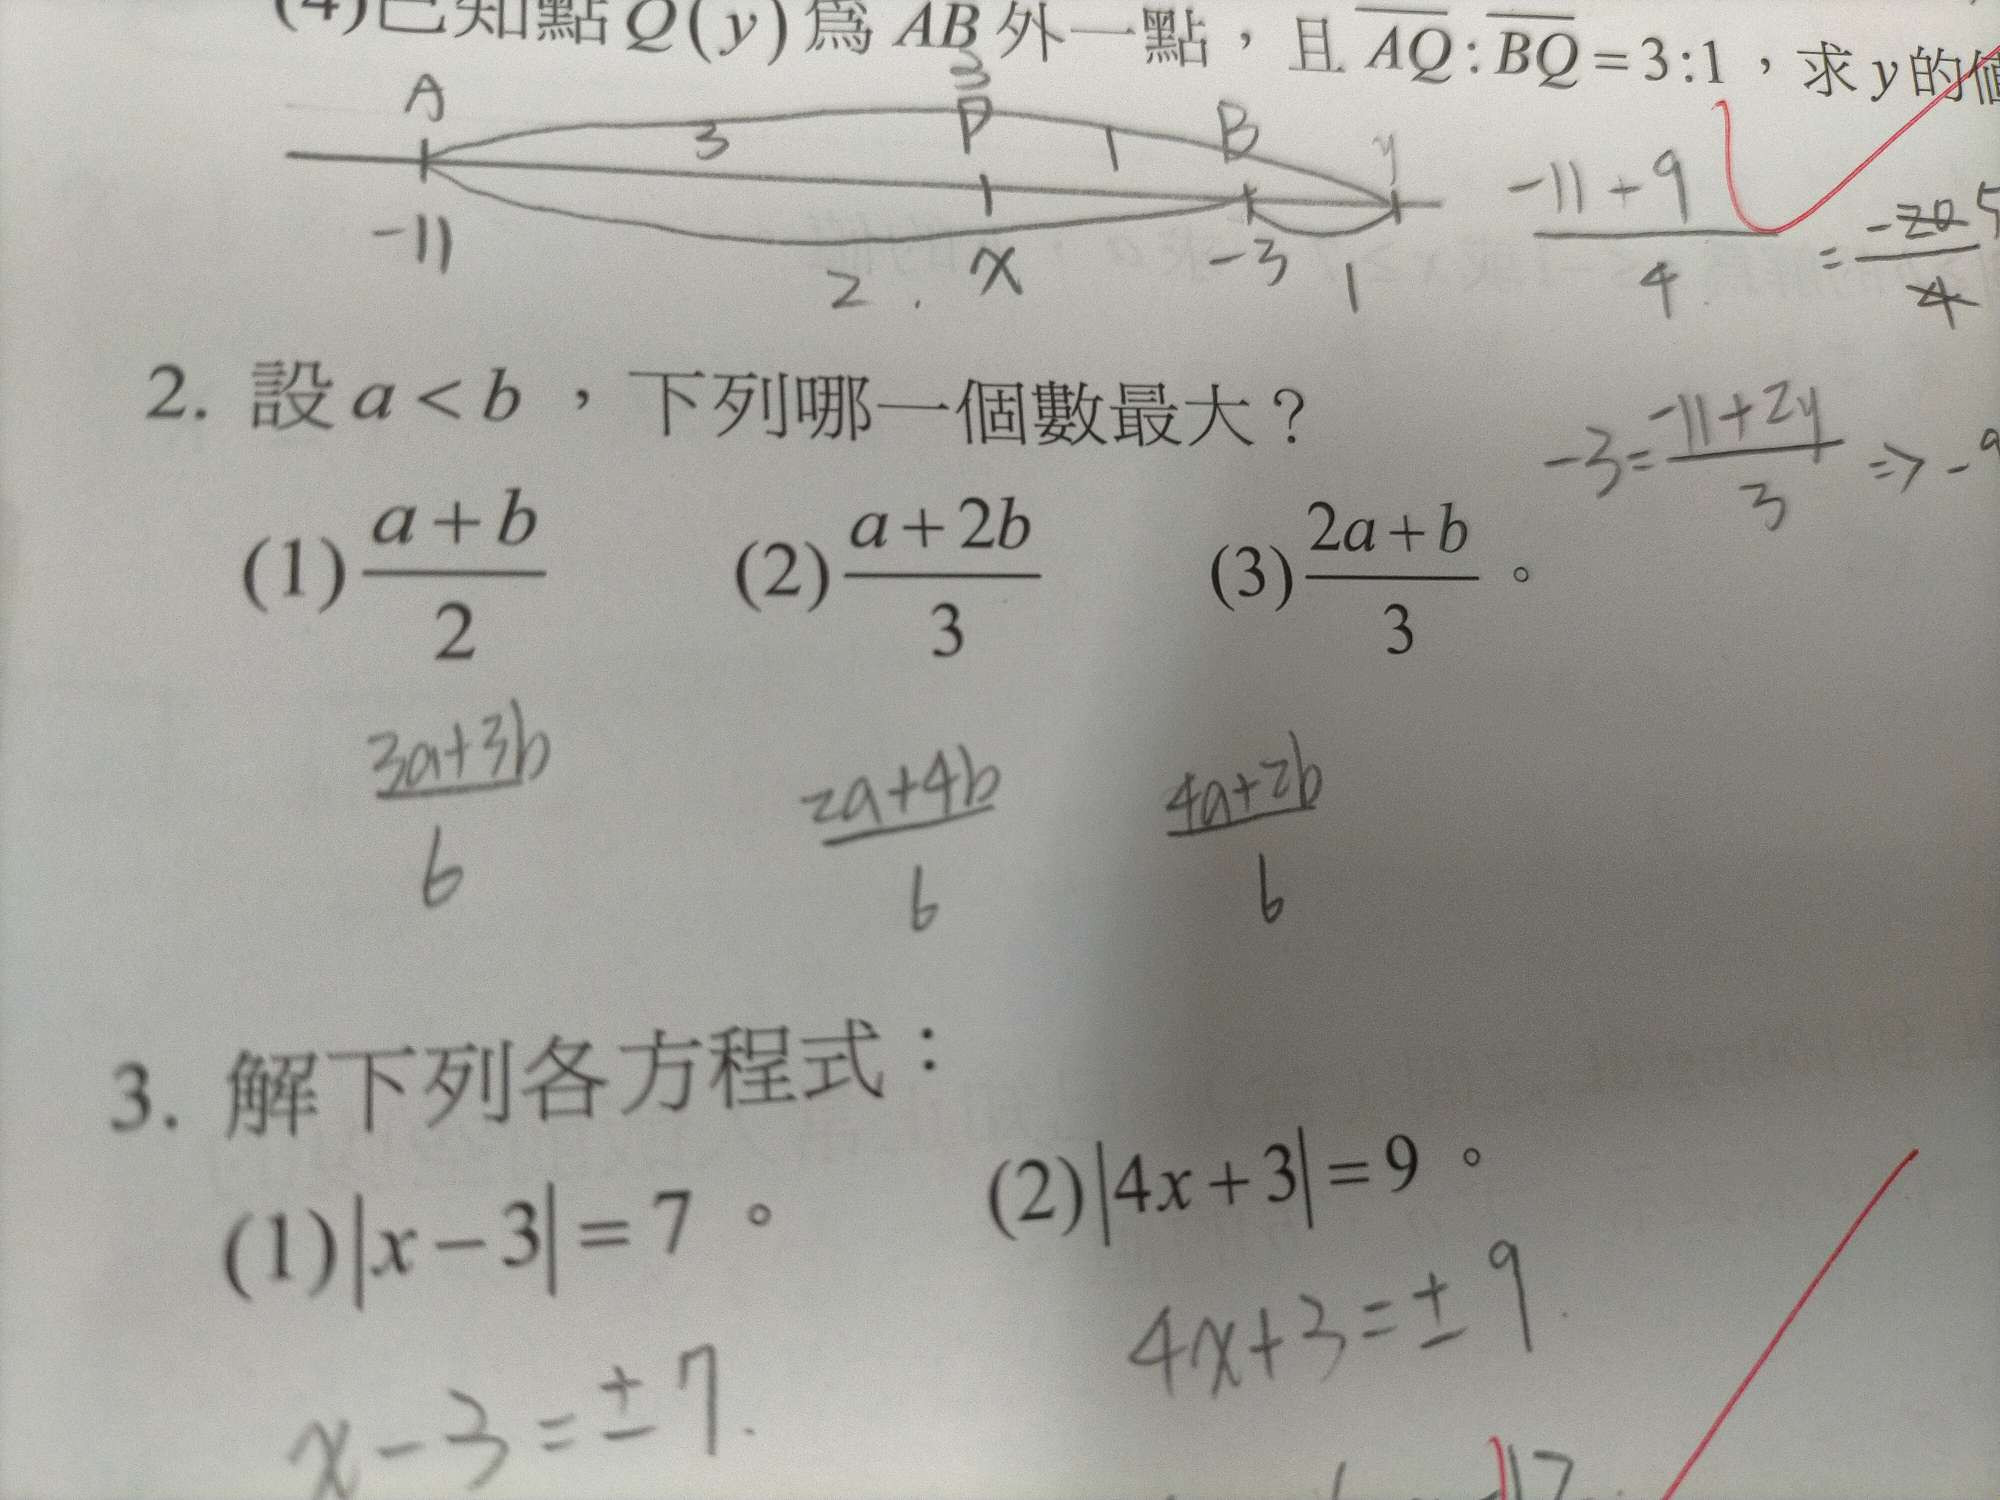 (4)已知點Q(y)為 AB 外一點，且 AQ:BQ=3:1，求y的值
A 3 P 3 1 B y
-11 2 x -3 1
-11+9/4 = -20/4 5
2. 設a<b，下列哪一個數最大？
-3=-11+2y/3 => -9
(1) a+b/2 (2) a+2b/3 (3) 2a+b/3。
3a+3b/6 2a+4b/6 4a+2b/6
3. 解下列各方程式：
(1)|x-3|=7。 (2)|4x+3|=9。
x-3=±7. 4x+3=±9.